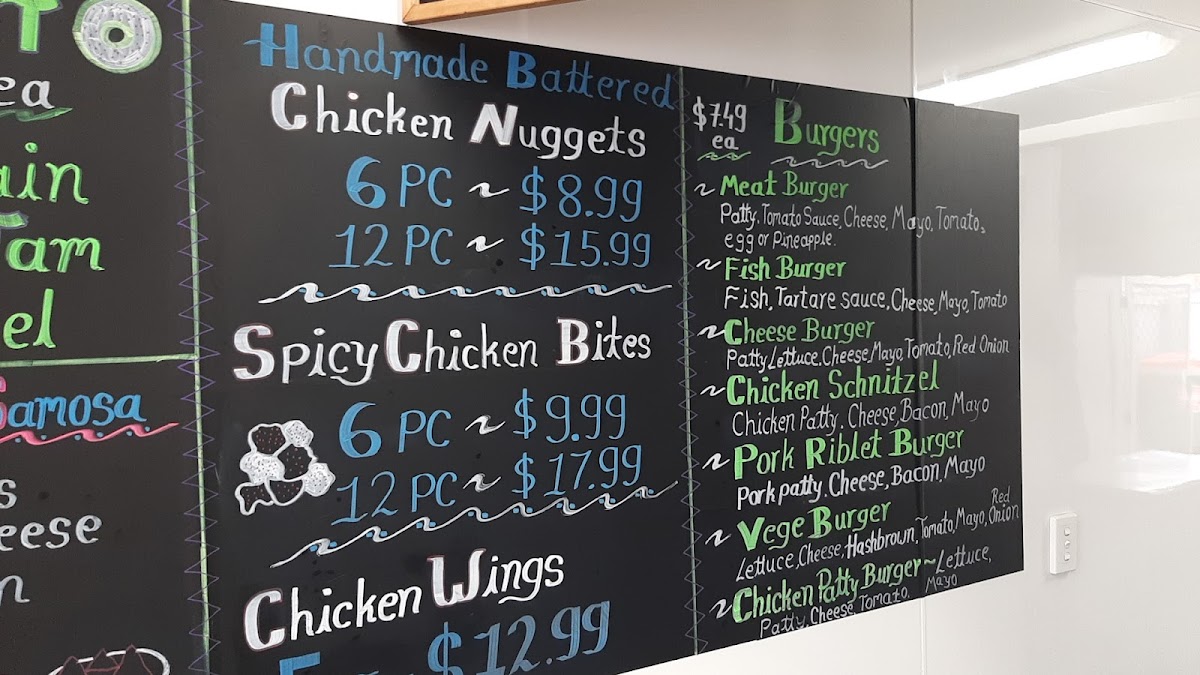 Handmade Battered
Chicken Nuggets
6 PC ~ $8.99
12 PC ~ $15.99
Spicy Chicken Bites
6 PC ~ $9.99
12 PC ~ $17.99
Chicken Wings
$12.99
$7.49
ea
Burgers
~ Meat Burger
Patty, Tomato Sauce, Cheese, Mayo, Tomato,
egg or Pineapple.
~ Fish Burger
Fish, Tartare sauce, Cheese, Mayo, Tomato
~ Cheese Burger
Patty Lettuce, Cheese Mayo, Tomato, Red Onion
~ Chicken Schnitzel
Chicken Patty, Cheese, Bacon, Mayo
~ Pork Riblet Burger
Pork patty, Cheese, Bacon, Mayo
~ Vege Burger
Lettuce, Cheese, Hashbrown, Tomato, Mayo, Red Onion
~ Chicken Patty Burger ~ Lettuce,
Patty, Cheese, Tomato, Mayo
ea
Samosa